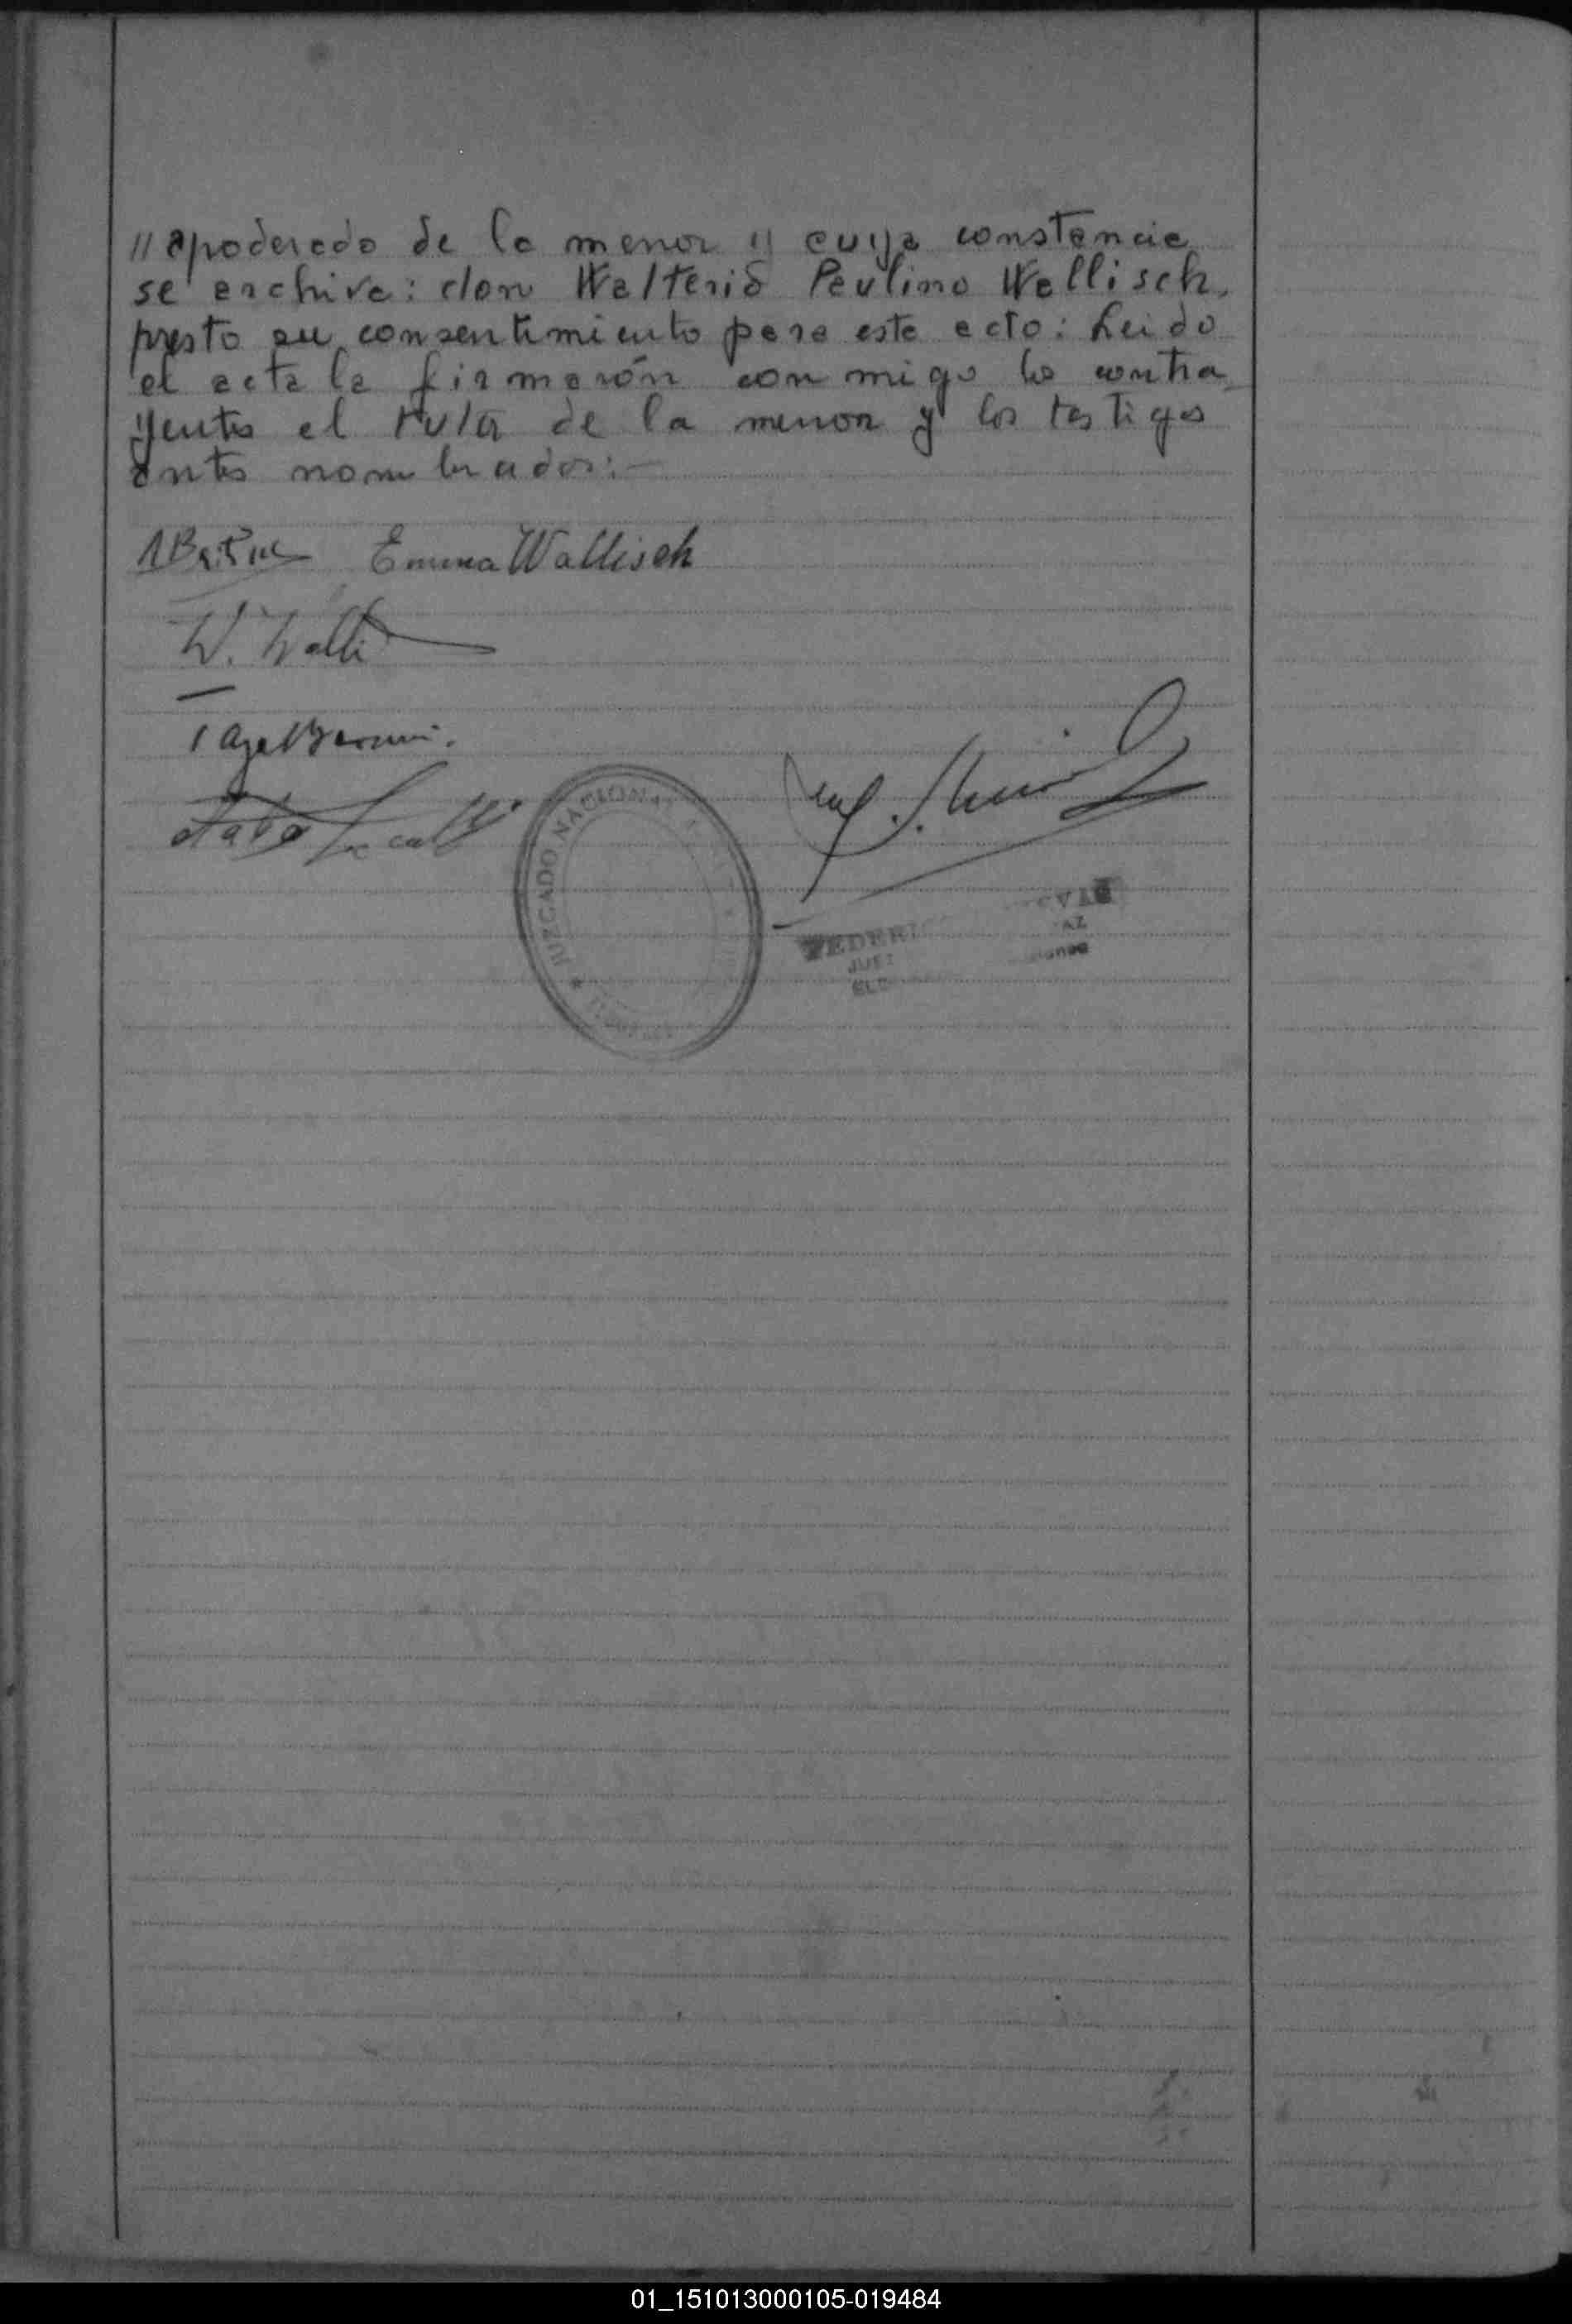 "apoderado de la menor" cuya constancia
se archiva: don Walterio Paulino Wallisch,
presto su consentimiento para este acto: Leido
el acta la firmarón con migo los contra
yentes el tutor de la menor y los testigos
antes nombrados:—
Emma Wallisch
W. Walli
JUZGADO NACIONAL
FEDERI
JUEZ
01_151013000105-019484